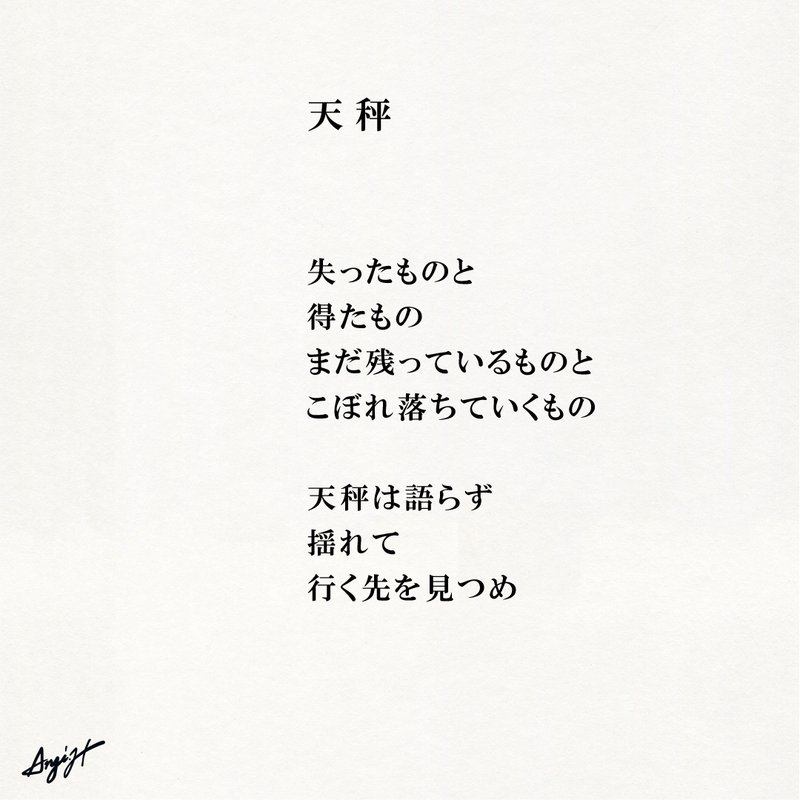 天秤
失ったものと
得たもの
まだ残っているものと
こぼれ落ちていくもの
天秤は語らず
揺れて
行く先を見つめ